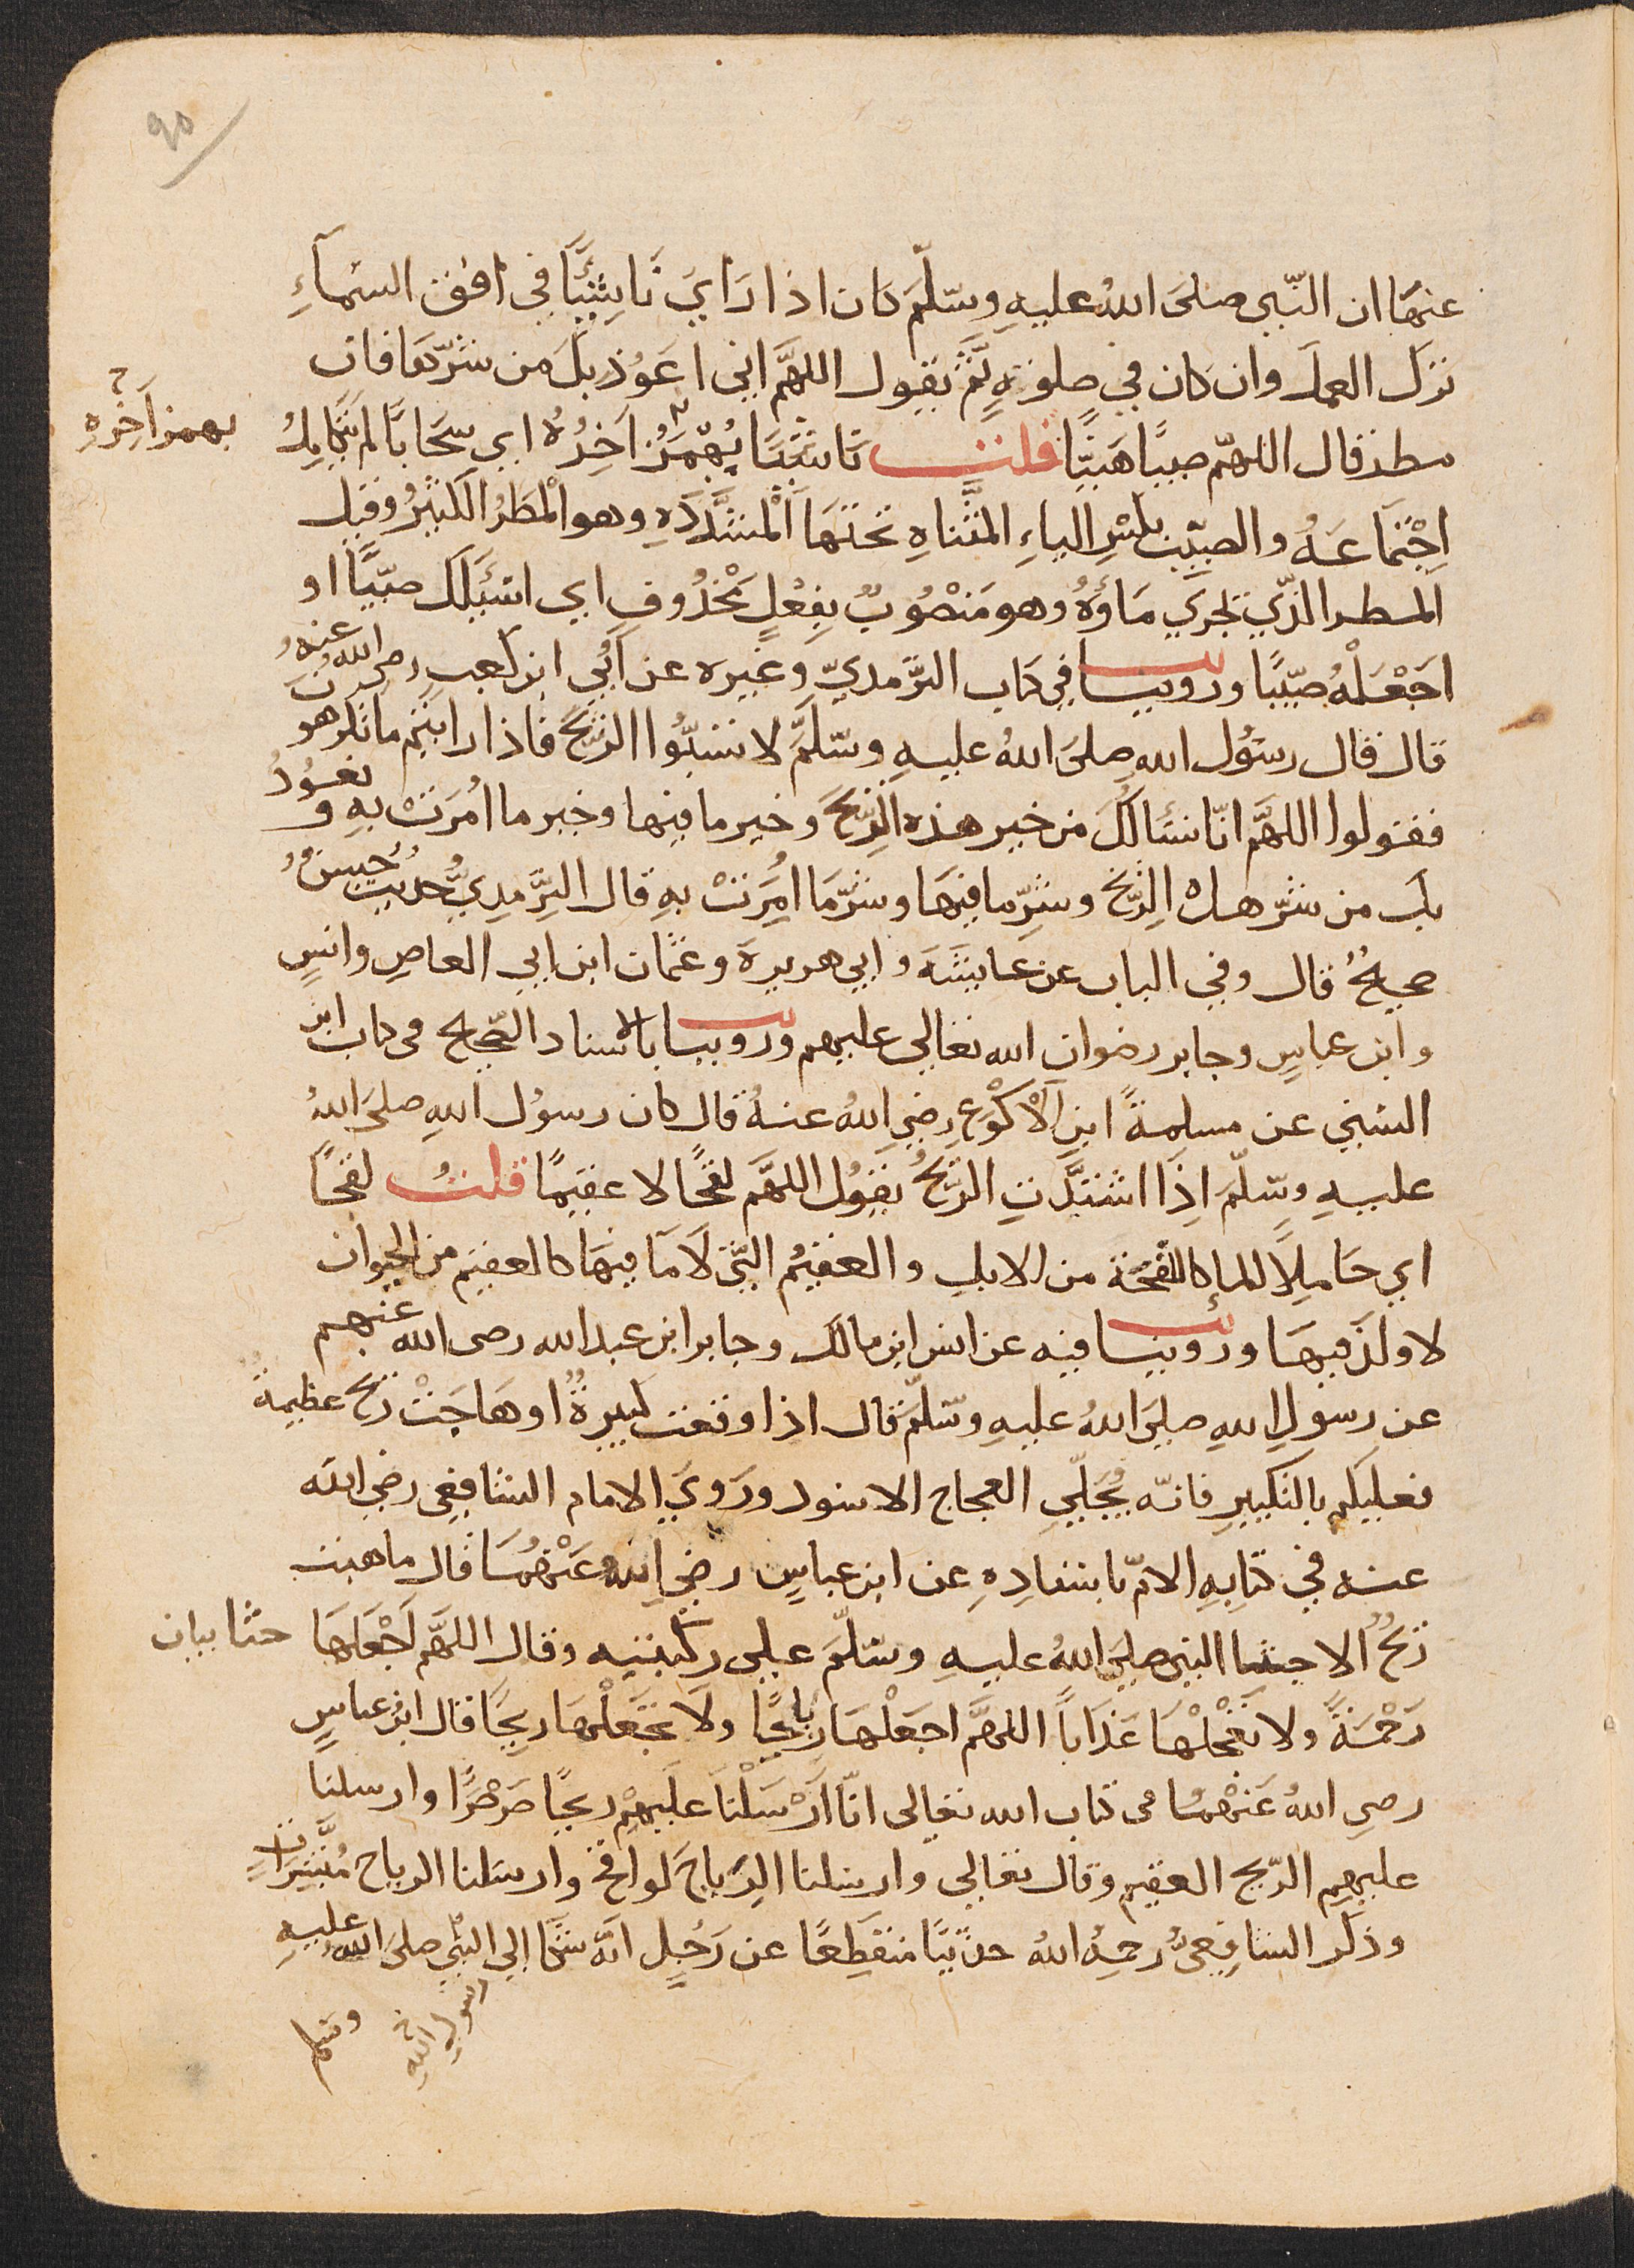 ٩٥
عنهَا ان النّبى صلىَ اللهُ عليهِ وسّلّمَ كان اذا رَايَ نَاشِئًا في افق السّمآءِ
ترَك العمل وان كان في صلوتِهِ ثمَّ يقول اللهمَّ اني اعَوُذ بكَ من شرّهَا فان
مطر قال اللهمّ صيبًا هَنيًّا قلت ناشئًا يُهْمَزُ اَخِرُهُ اي سحَابًا لم يتكامل
بهمز آخِرِهِ
اِجْتماعَهُ والصيِّب بكسْرِ الياءِ المثنَّاهِ تحتهَا اَلْمشدَّدَهِ وهو اْلمطَرُ الكثيْرُ وقيل
المطر الذّي يَجري مَاؤهُ وهو مَنْصُوبٌ بِفِعْلٍ مَحْذُوفٍ اي اسْئَلكَ صيّبًا او
اجَعْلْهُ صيّبًا وروينا في كتاب الترَّمديّ وغيره عن اُبَي ابن كعب رضى الله عنهُ
قال قال رسَوُل اللهِ صلىَ اللهُ عليهِ وسّلمَّ لا تسُبُّوا الرّيْحَ فاذا رايتم ما تكرهون
فقولوا اللهمَّ انّا نسْئالُكَ من خير هذه الرّيْحَ وخير ما فيها وخير ما امُرَتْ بهِ ونعوُذُ
بك من شرّ هذه الِرّيحْ وشرّ ما فيهَا وشرّ مَا امُرَتْ بهِ قال التِرَّمِديُّ حديث حَسَنٌ
صحيحٌ قال وفي الباب عن عايشَهَ وابي هريرةَ وعثمان ابن ابي العاصِ وانسٍ
وابن عباسٍ وجابر رضوان الله تعالي عليهم وروينا بالاسناد الصّحيح فى كتاب ابن
السّنى عن مسلمةً ابنِ اْلاَكْوَعِ رضِي اللهُ عنهُ قال كان رسوُل اللهِ صلىَ اللهُ
عليهِ وسّلّمَ اِذَا اشتدَّتِ الرّيْحُ يقوُل اللهمَّ لقحًا لا عقيمًا قلتُ لقحًا
اي حَاملِاً للما كاللّقحَة من الابلِ والعقيْمُ التّى لاَ مَآ فيهَا كالعقيم من الحيوان
لا ولدَ فيهَا وروينا فيه عن انس ابن مالك وجابر ابن عبد الله رضى الله عنهم
عن رسولِ اللهِ صلىَ اللهُ عليهِ وسّلّمَ قال اذا وقعت كبيرةٌ او هَاجَتْ ريْحٌ عظيمةٌ
فعليكم بالتكبيرِ فانّه يُجَلّىِ العجاج الاسود ورَويَ الامام الشافعى رضي الله
عنه في كتابِهِ الامّ باسْنادِهِ عن ابن عباسٍ رضِي اللهُ عَنْهُمَا قال ما هبت
ريحٌ الا جثا النبى صلىَ اللهُ عليهِ وسّلّمَ علىى ركبتيه وقال اللهمَّ اجَعْلهَا
حثا بيان
رَحْمَةً ولا تَجْعلْهَا عَذَاباً اللهمَّ اجعَلْهَا رِيَاحًا ولاَ تَجْعَلْهَا ريحًا قال ابن عباسٍ
رضى اللهُ عَنهُمَا فى كتاب الله تعالى انّا اَرْسَلْنَا عَليهِمْ ريحًا صَرْصَرًا وارسلنا
عليهمِ الرّيح العقيم وقال تعالى وارسلنا الِرّياحَ لواقحَ وارسَلنا الرياح مُبَشِّراتٍ
وذكَر الشافِعىُّ رحمهُ اللهُ حديثًا منقطِعًا عن رَجُلٍ انَّه شكَا إلي النبّي صلىَ اللهُ عليهِ
وسلم
رسول اللهِ